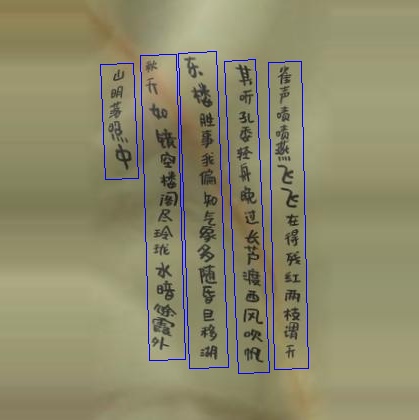 雀声啧啧燕飞飞在得残红两枝谓开
其听孔委轻舟晚过长芦渡西风吹帆
东楼胜事我偏知气象多随昏旦移湖
秋开如镜空楼阁尽玲珑水暗馀霞外
山明落照中